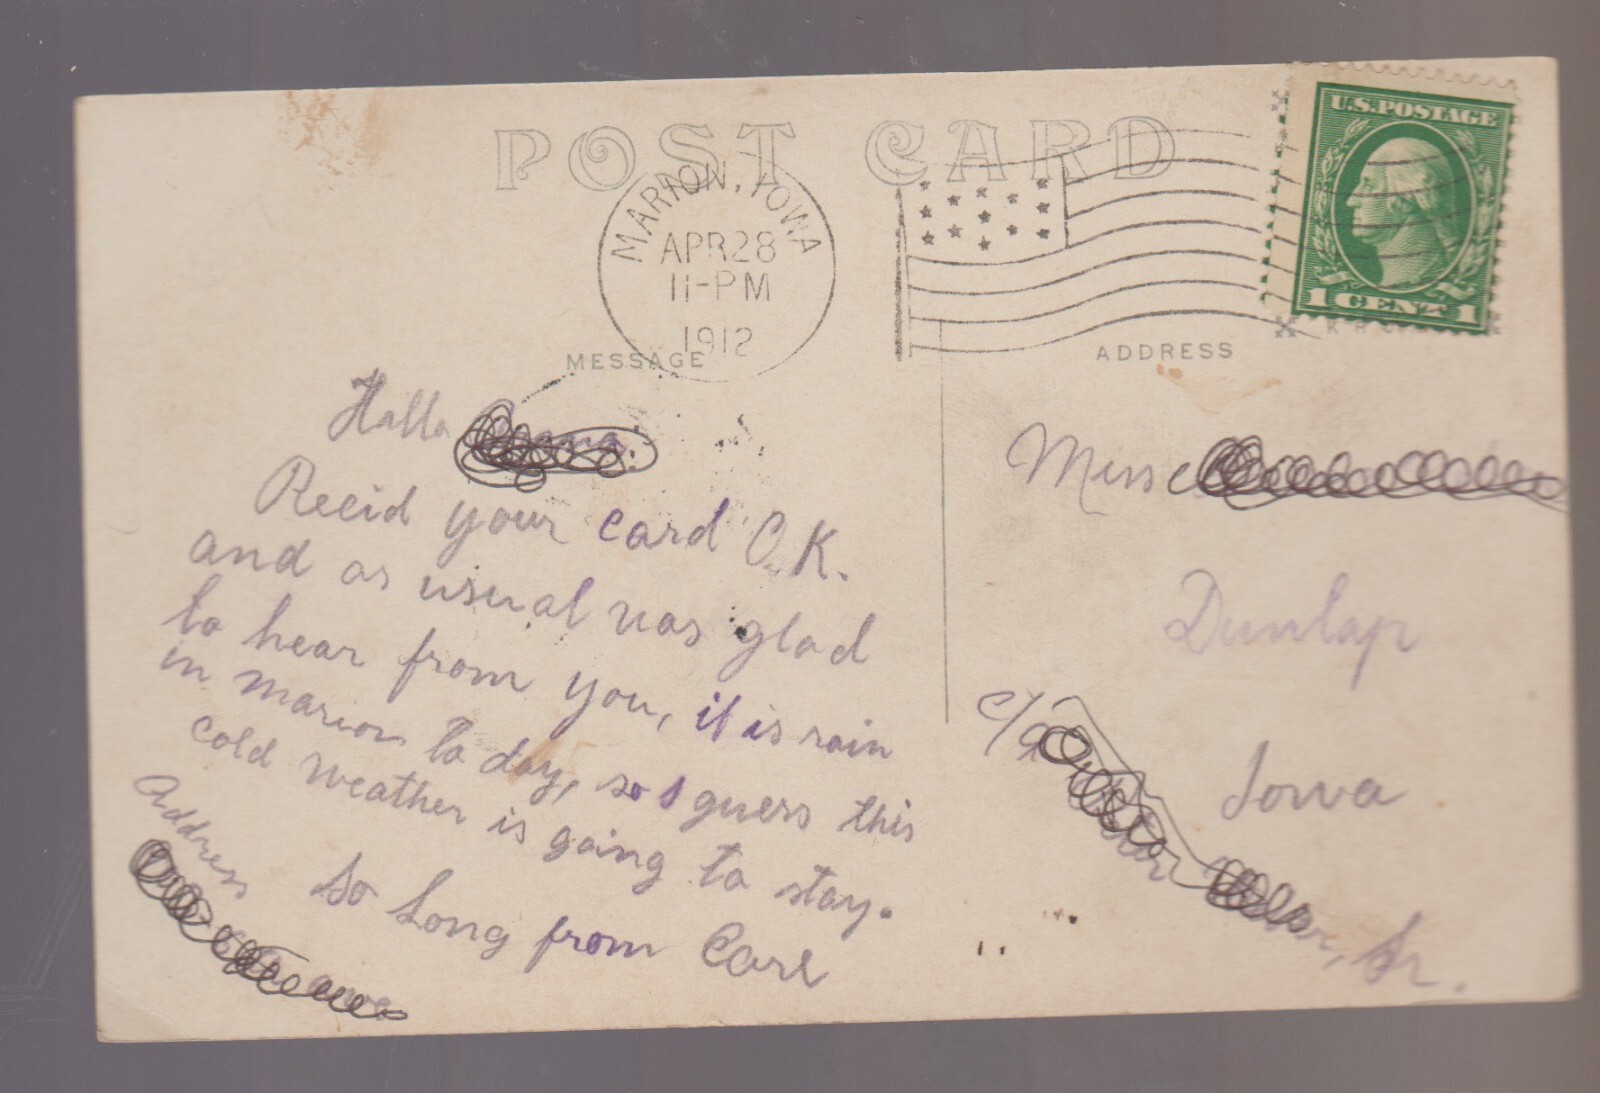 POST CARD
MARION, IOWA
APR 28
11-PM
1912
U.S. POSTAGE
1 CENT 1
MESSAGE
ADDRESS
Hallo
Recid your card O.K.
and as usual was glad
to hear from you, it is rain
in marion to day, so I guess this
cold weather is going to stay.
So Long from Carl
Address
Miss
Dunlap
Iowa
c/o
Sr.